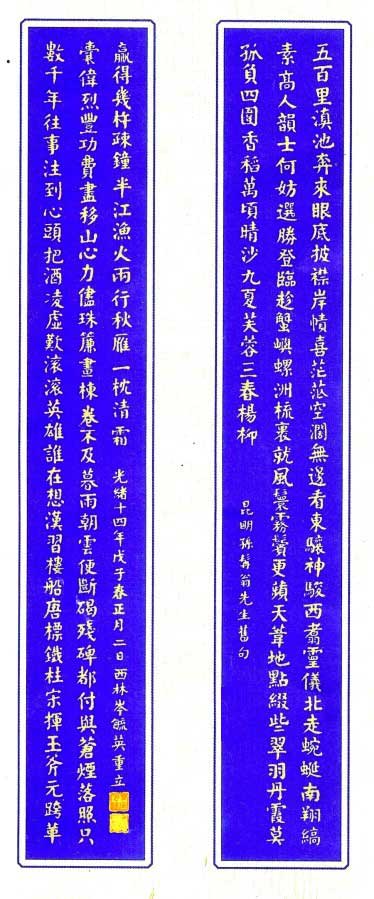 五百里滇池奔來眼底披襟岸幘喜茫茫空濶無邊看東驤神駿西翥靈儀北走蜿蜒南翔縞
素高人韻士何妨選勝登臨趁蟹嶼螺洲梳裹就風鬟霧鬢更蘋天葦地點綴些翠羽丹霞莫
孤負四圍香稻萬頃晴沙九夏芙蓉三春楊柳
昆明孫髯翁先生舊句
數千年往事注到心頭把酒凌虛歎滾滾英雄誰在想漢習樓船唐標鐵柱宋揮玉斧元跨革
囊偉烈豐功費盡移山心力儘珠簾畫棟卷不及暮雨朝雲便斷碣殘碑都付與蒼煙落照只
贏得幾杵疎鐘半江漁火兩行秋雁一枕清霜
光緒十四年戊子春正月二日西林岑毓英重立